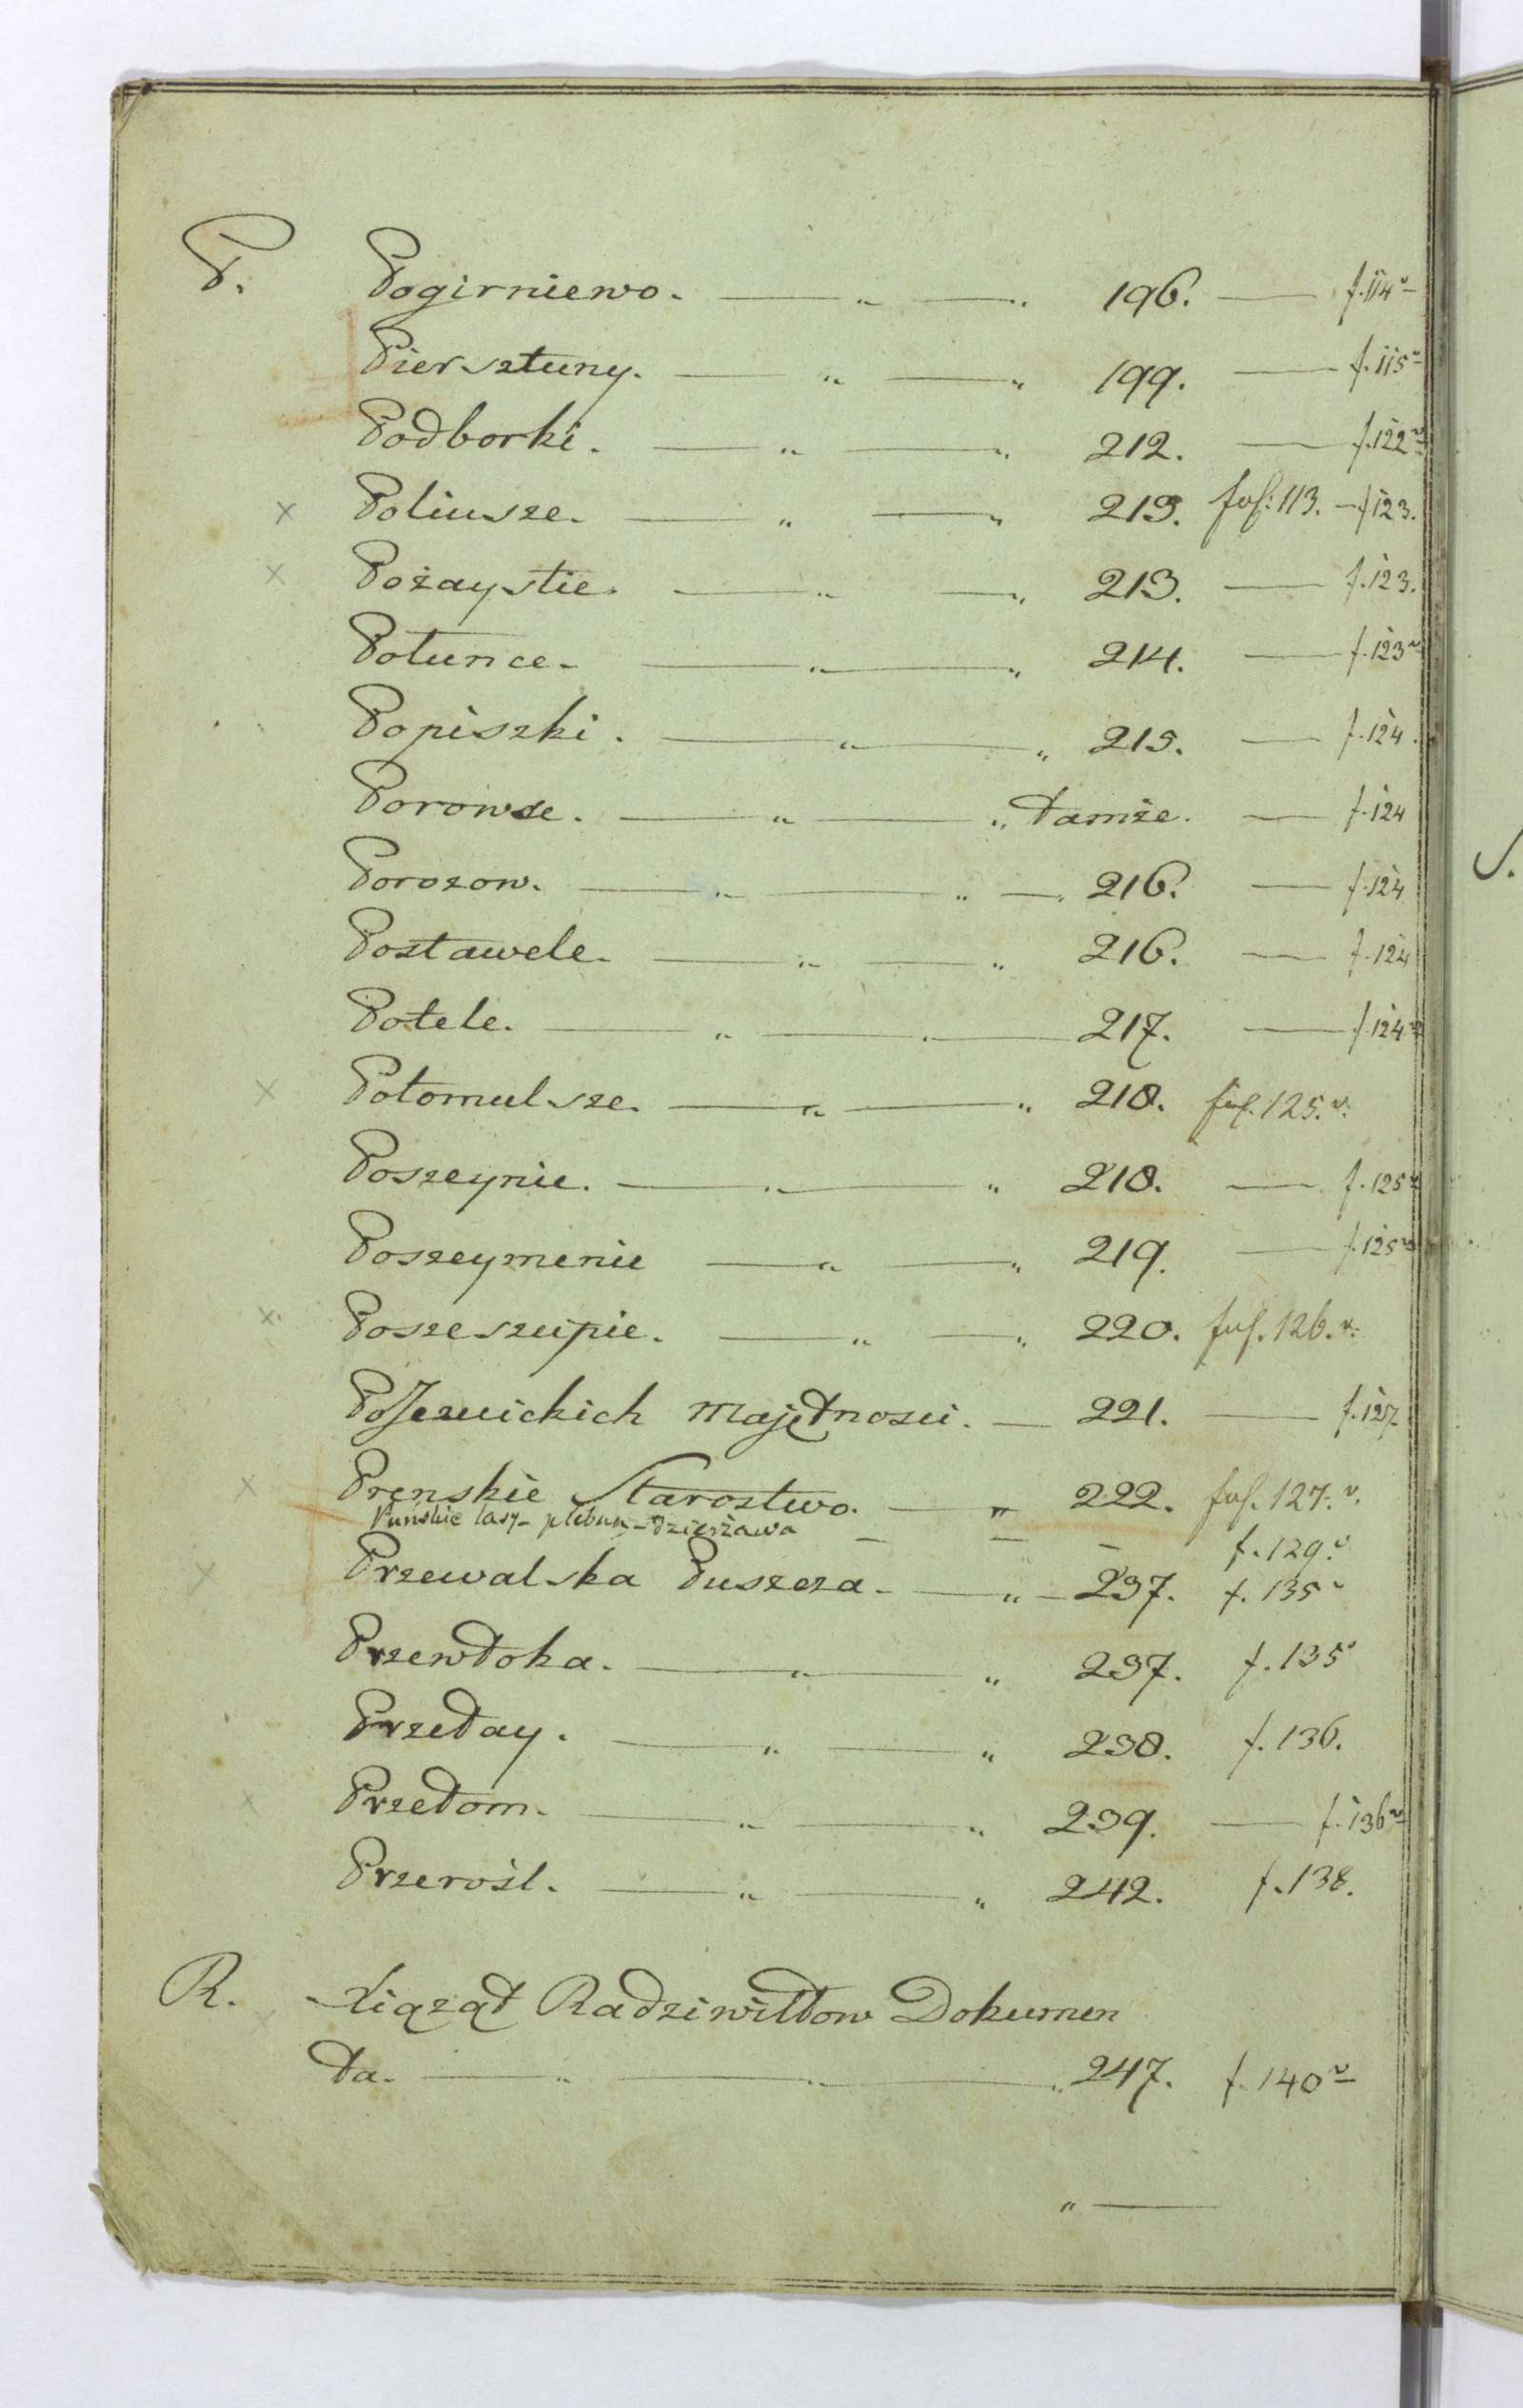 P. Pogirniewo. — „ — „ 196. — f. 114 v
Piersztuny. — „ — „ 199. — f. 115 v
Podborki. — „ — „ 212. — f. 122 v
× Poliusze. — „ — „ 213. fol: 113. — f 123.
× Pożaystie. — „ — „ 213. — f. 123.
Połunce. — „ — „ 214. — f. 123 v
Popiszki. — „ — „ 215. — f. 124.
Porowse. — „ — „ Tamże. — f. 124
Porozow. — „ — „ — 216. — f. 124
Postawele. — „ — „ 216. — f. 124
Potele. — „ — „ — 217. — f. 124 v
× Potomulsze. — „ — „ 218. fol. 125. v.
Poszeynie. — „ — „ 218. — f. 125 v
Poszeymenie — „ — „ 219. — f. 125 v
× Poszeszupie. — „ — „ 220. fol. 126. v.
Majętnosci. — 221. — f. 127
× Prenskie Starostwo. — „ 222. fol. 127. v.
Puńskie lasy - pleban - dzierżawa — — — f. 129. v
× Przewalska Puszcza. — „ — 237. f. 135 v
Przewłoka. — „ — „ 237. f. 135 v
Przełay. — „ — „ 238. f. 136.
× Przełom. — „ — „ 239. — f. 136 v
Przerośl. — „ — „ 242. f. 138.
R. × Xiążąt Radziwiłłow Dokumen
ta. — „ — „ — „ 247. f. 140 v
„ —
S.